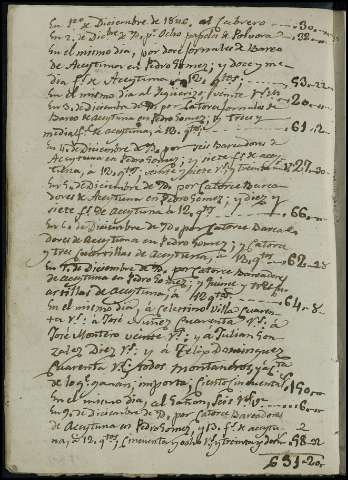 En 1º de Diciembre de 1826, al Cabrero 30
En 2, de Dicbre de Dº, pr Ocho papeles de Polvora 32
En el mismo dia, por doce jornales de Bareo
de Aceytuna en Pedro Gomez; y doce y me
dia fs de Aceytuna 12 qtos, 53-22
En el mismo dia al veinte rs vn 20
En 3, de Diciembre de Dº, por Catorce jornales de
Bareo de aceytuna en Pedro Gomez; y trece y
media fs de aceytuna, à 12, qtos 61-2
En 4, de Diciembre de Dº, por seis Bareadores de
Aceytuna en Pedro Gomez; y siete fs de acey
tuna, à 12, qtos, veinte y siete rs y treinta 27-30
En 5, de Diciembre de Dº, por Catorce Barea
dores de Aceytuna en Pedro Gomez; y diez y
siete fs de Aceytuna à 12, qtos 66
En 6, de Diciembre de Dº, por Catorce Barea
dores de Aceytuna en Pedro Gomez; y Catorce
y tres Cuartillas de Aceytuna, à 12, qtos 62-28
En 7, de Diciembre de Dº, por Catorce Bareadores
de Aceytuna en Pedro Gomez; y quince y tres cu
artillas de Aceytuna, à 12 qtos 64-8
En el mismo dia, à Celestino Villa Cuaren
ta rs: à José Nuñez Cuarenta rs: à
José Montero veinte rs: y à Julian Gon
zalez Diez rs: y à Felip Dominguez
Cuarenta rs: todos montaneros, y à Cta
de lo qe ganan; importa, Ciento cincuenta 150
En el mismo dia, al Gañon, seis rs vn 6
En 9, de Diciembre de Dº, por Catorce Bareadores
de Aceytuna en Pedro Gomez, y 13, fs de aceytu
na, à 12, qtos, Cincuenta y ocho rs y treinta y dos 58-32
631-20